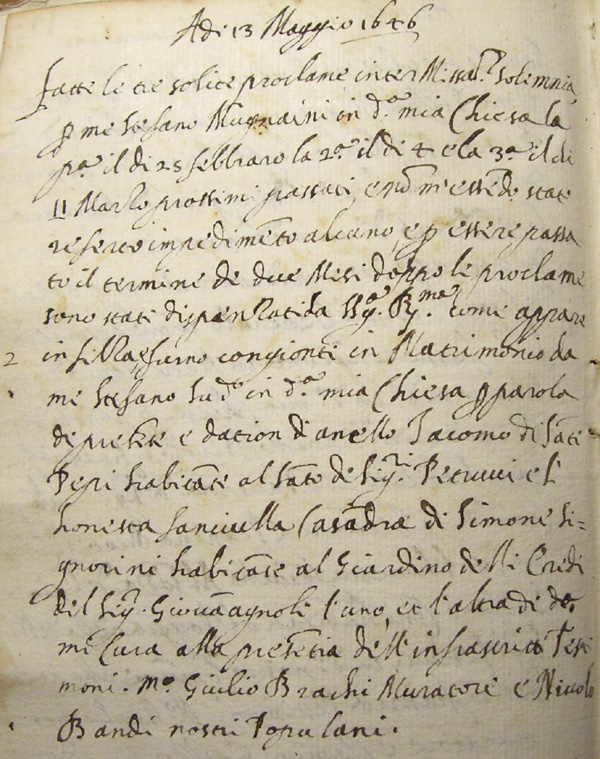 Adi 13 Maggio 1646
fatte le tre solite proclame inter Missar. solemnia
p me Stefano Mugnaini in d.ª mia Chiesa la
p.ª il di 25 febbraro la 2.ª il di 4 e la 3.ª il di
11 Marzo prossimi passati, e nō m'essēdo stato
referto impedimēto alcuno, e p essere passa
to il termine de due Mesi doppo le proclame
sono stati dispenzati da
come appare
in filza, furno congionti in Matrimonio da
me Stefano Su.dº in d.ª mia Chiesa p parola
de presēte e dation di anello Iacomo di Sāti
Pepi habitāte al di Sig.ri Petrucci e l'
honesta fanciulla Casādra di Simone Si=
gnorini habitāte al Giardino delli Credi
del Sig.r l'uno, et l'altra di dª
mi Cura alla presētia dell'infrascritti Testi
moni. Mº Giulio Brachi Muratore e Niccolo
Bandi nostri Populani.
2